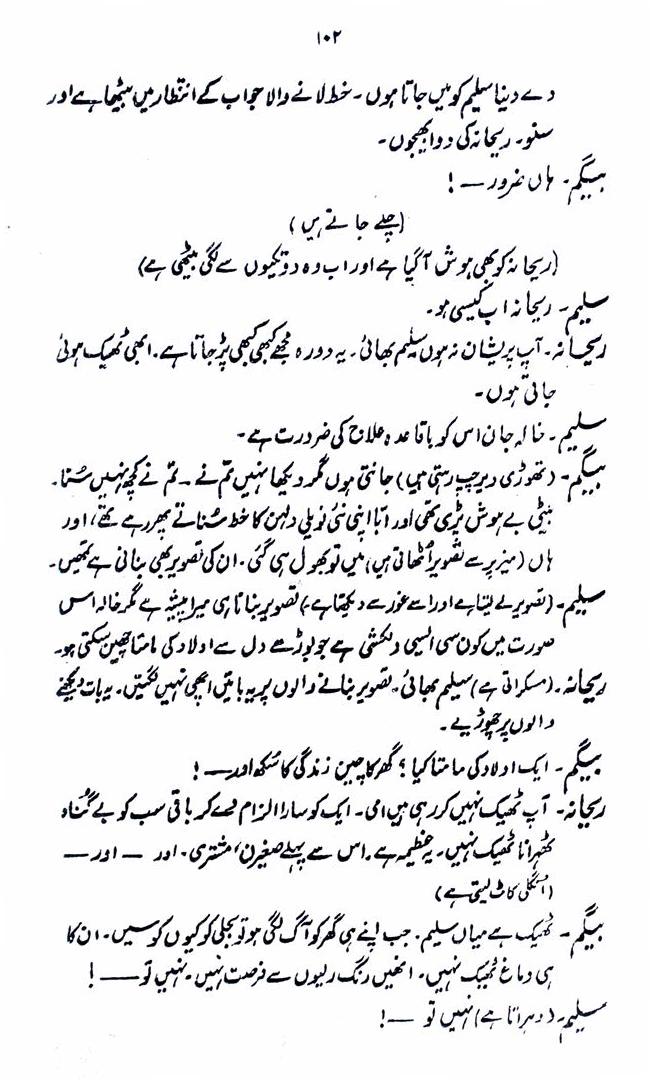 ۱۰۲
دے دینا سلیم کو میں جاتا ہوں۔ خط لانے والا جواب کے انتظار میں بیٹھا ہے اور
سنو۔ ریحانہ کی دوا بھیجوں۔
بیگم۔ ہاں ضرور —!
(چلے جاتے ہیں)
(ریحانہ کو بھی ہوش آگیا ہے اور اب وہ دو تکیوں سے لگی بیٹھی ہے)
سلیم۔ ریحانہ اب کیسی ہو۔
ریحانہ۔ آپ پریشان نہ ہوں سلیم بھائی۔ یہ دورہ مجھے کبھی کبھی پڑ جاتا ہے۔ ابھی ٹھیک ہوئی
جاتی ہوں۔
سلیم۔ خالہ جان اس کو باقاعدہ علاج کی ضرورت ہے۔
بیگم۔ (تھوڑی دیر چپ رہتی ہیں) جانتی ہوں مگر دیکھا نہیں تم نے۔ تم نے کچھ نہیں سُنا۔
بیٹی بے ہوش پڑی تھی اور ابّا اپنی نئی نویلی دلہن کا خط سُناتے پھر رہے تھے، اور
ہاں (میز پر سے تصویر اُٹھاتی ہیں) میں تو بھول ہی گئی۔ ان کی تصویر بھی بنانی ہے تمھیں۔
سلیم۔ (تصویر لے لیتا ہے اور اسے غور سے دیکھتا ہے) تصویر بنانا ہی میرا پیشہ ہے مگر خالہ اس
صورت میں کون سی ایسی دلکشی ہے جو بوڑھے دل سے اولاد کی مامتا چھین سکتی ہو۔
ریحانہ۔ (مسکراتی ہے) سلیم بھائی۔ تصویر بنانے والوں پر یہ باتیں اچھی نہیں لگتیں۔ یہ بات دیکھنے
والوں پر چھوڑیے۔
بیگم۔ ایک اولاد کی مامتا کیا؟ گھر کا چین زندگی کا سُکھ اور —!
ریحانہ۔ آپ ٹھیک نہیں کر رہی ہیں امی۔ ایک کو سارا الزام دے کر باقی سب کو بے گُناہ
ٹھہرانا ٹھیک نہیں۔ یہ عظیمہ ہے۔ اس سے پہلے صغیرن، مشتری۔ اور — اور —
(انگلی کاٹ لیتی ہے)
بیگم۔ ٹھیک ہے میاں سلیم۔ جب اپنے ہی گھر کو آگ لگی ہو تو بجلی کو کیوں کوسیں۔ ان کا
ہی دماغ ٹھیک نہیں۔ انھیں رنگ رلیوں سے فرصت نہیں۔ نہیں تو —!
سلیم۔ (دہراتا ہے) نہیں تو —!